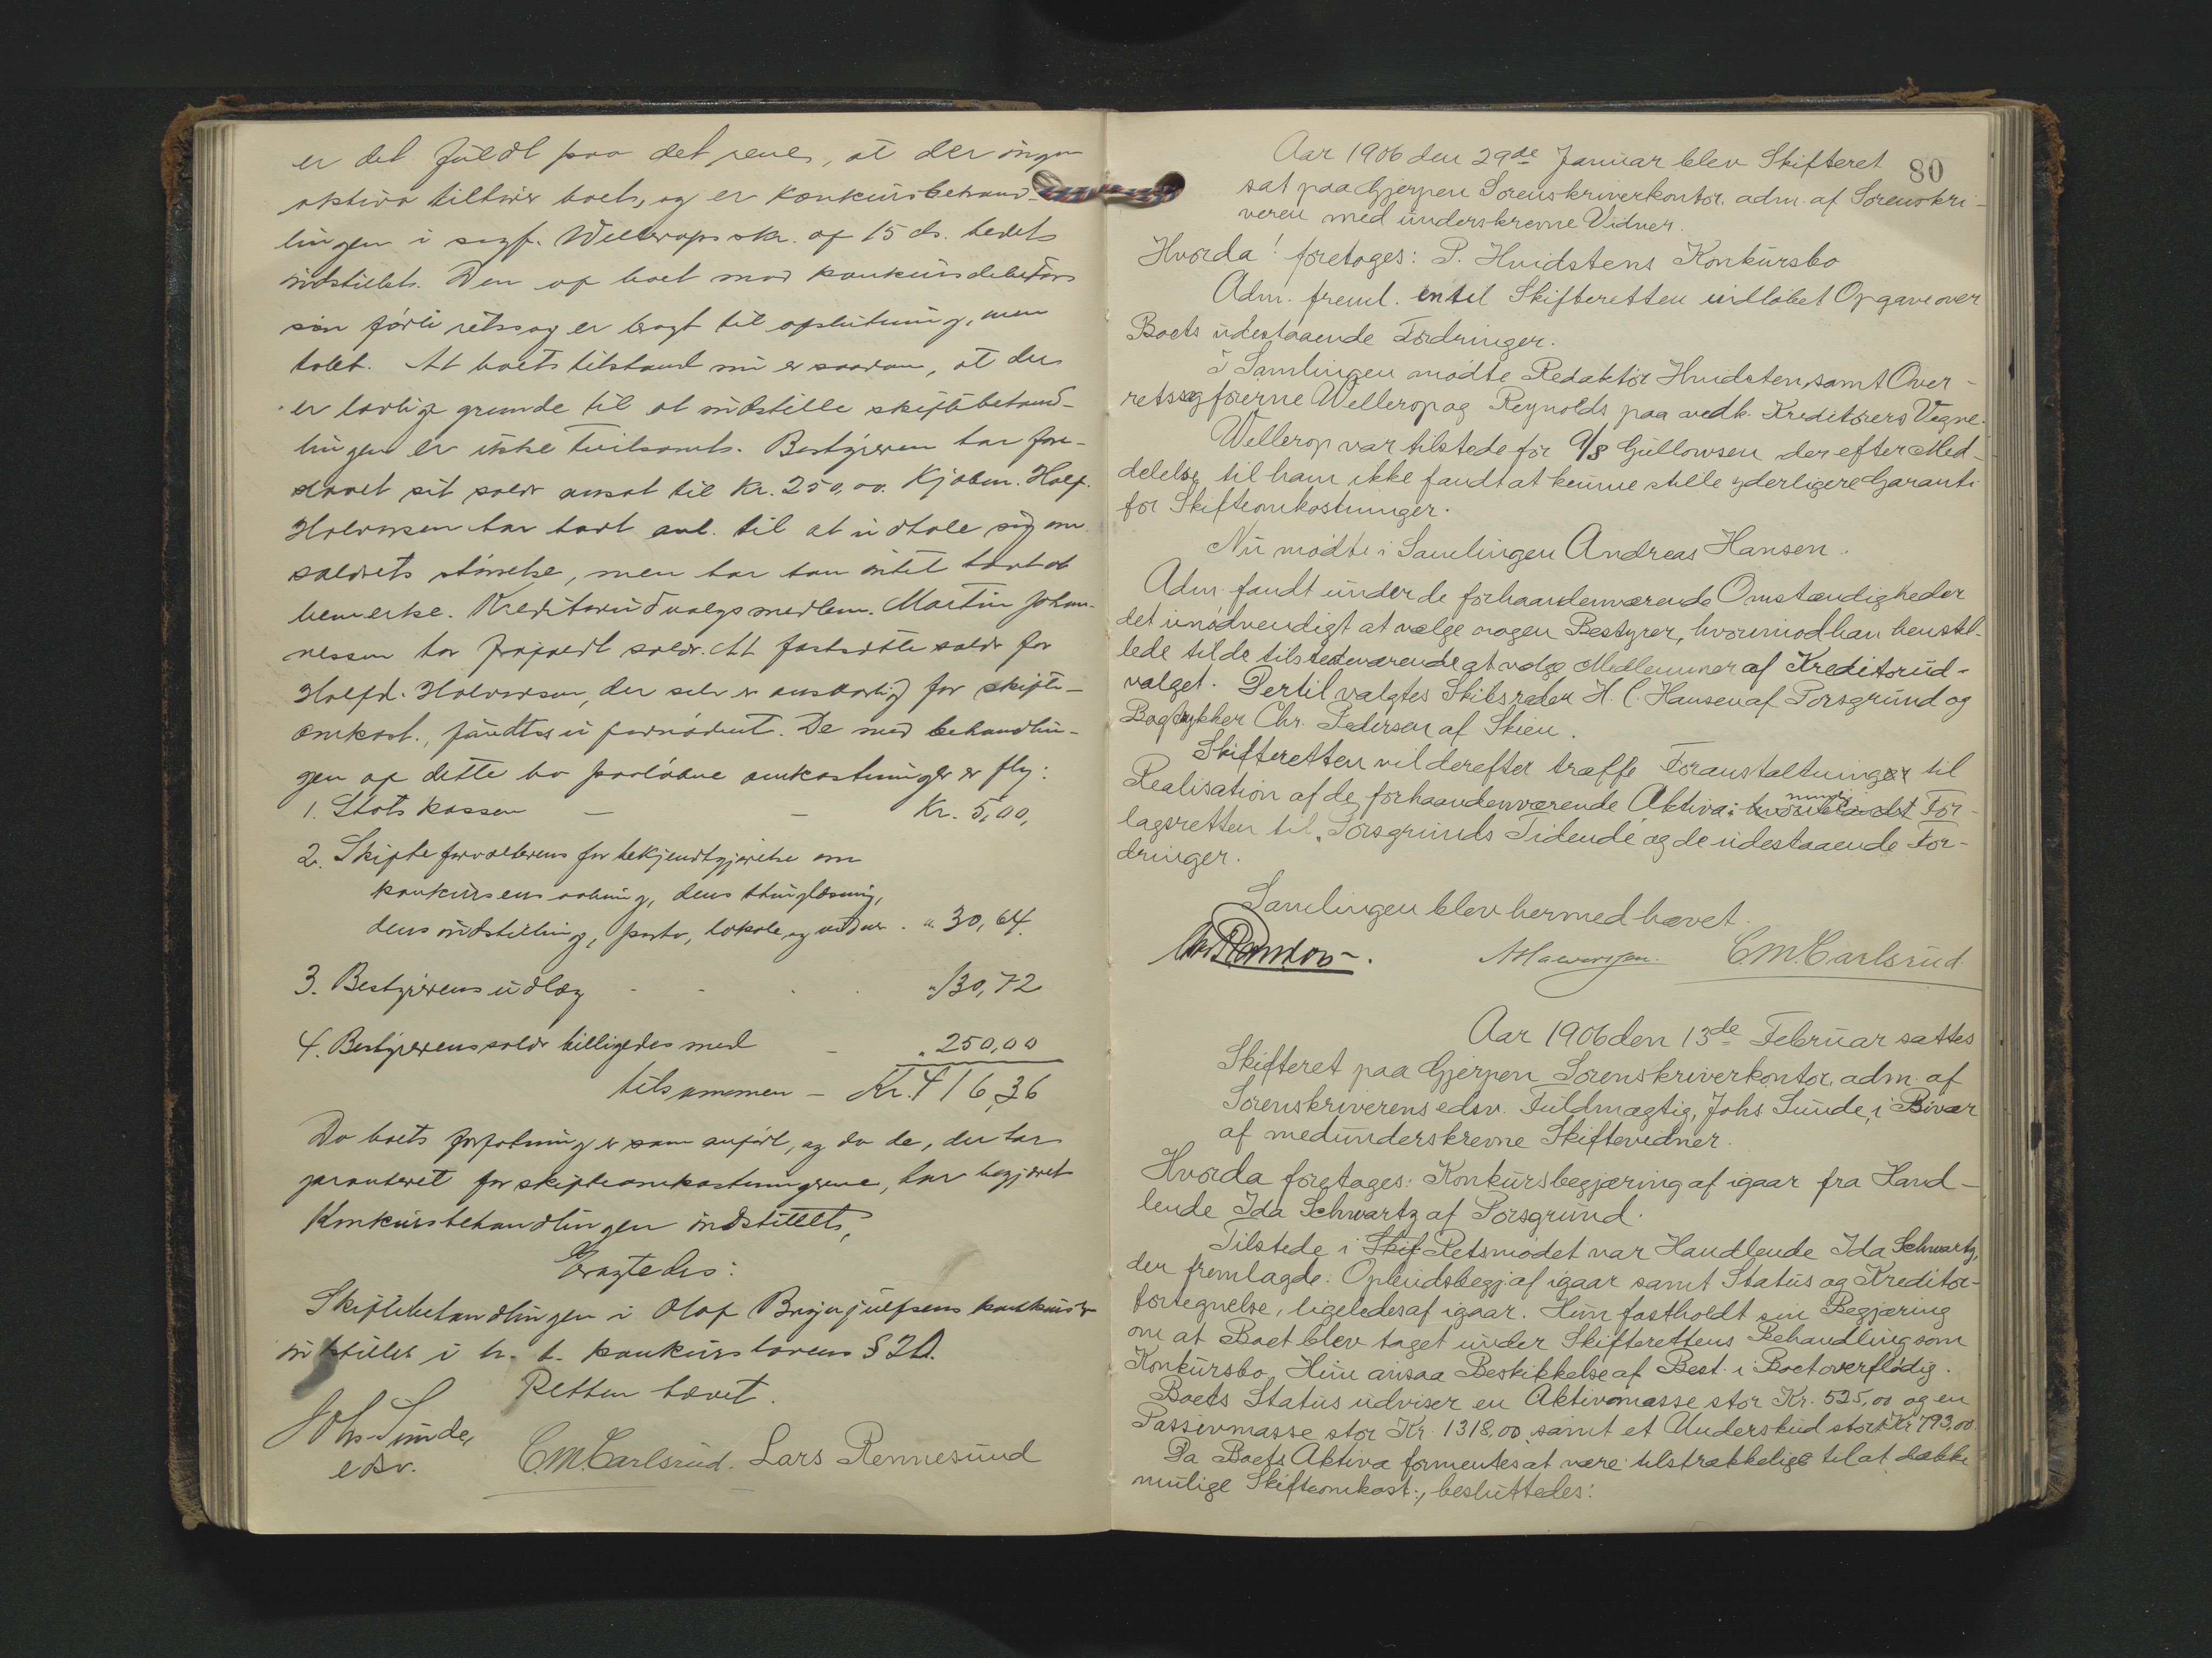 er det fuldt paa det rene, at der ingen
aktiva tilhører boet, og er konkursbehand-
lingen i sagf. Wellerops skr. af 15 ds. bedets
indstillet. Den af boet mod konkursdebitors
søn førte retssag er bragt til afslutning, men
tabt. At boets tilstand nu er saadan, at der
er lovlige grunde til at indstille skiftebehand-
lingen er ikke tvilsomt. Bestyreren har fore-
slaaet sit salær ansat til Kr. 250,00. Kjøbm. Half.
Halvorsen har havt anl. til at udtale sig om
salærets størrelse, men har han intet havt at
bemerke. Kreditorudvalgsmedlem. Martin Johan-
nessen har frafaldt salær. At fastsætte salær for
Halfd. Halvorsen, der selv er ansvarlig for skifte-
omkost., fandtes ufornødent. De med behandlin-
gen af dette bo paaløbne omkostninger er flg:
1. Statskassen — — Kr. 5,00,
2. Skifteforvalterens for bekjendtgjørelse om
konkursens aabning, dens thinglæsning,
dens indstilling, porto, lokale og vidner . " 30,64.
3. Bestyrerens udlæg - - . . " 130,72
4. Bestyrerens salær billigedes med - " 250,00
tilsammen - Kr. 416,36
Da boets forfatning er som anført, og da de, der har
garanteret for skifteomkostningerne, har begjæret
Konkursbehandlingen indstillet,
Eragtedes:
Skiftebehandlingen i Olaf Brynjulfsens konkursbo
indstilles i h. t. konkurslovens §
Retten hævet.
Johs Sunde,
edsv.
C.M. Carlsrud. Lars Rennesund
80
Aar 1906 den 29de Januar blev Skifteret
sat paa Gjerpen Sorenskriverkontor, adm. af Sorenskri-
veren med underskrevne Vidner.
Hvorda! foretages: P. Hvidstens Konkursbo
Adm. freml. en til Skifteretten indløbet Opgave over
Boets udestaaende Fordringer.
I Samlingen mødte Redaktør Hvidsten, samt Over-
retssagførerne Wellerop og Reynolds paa vedk. Kreditorers Vegne.
Wellerop var tilstede for A/S Gullowsen der efter Med-
delelse til ham ikke fandt at kunne stille yderligere Garanti
for Skifteomkostninger.
Nu mødte i Samlingen Andreas Hansen.
Adm. fandt under de forhaandenværende Omstændigheder
det unødvendigt at vælge nogen Bestyrer, hvorimod han henstil-
lede til de tilstedeværende at vælge Medlemmer af Kreditorud-
valget. Dertil valgtes Skibsreder H. C. Hansen af Porsgrund og
Bogtrykker Chr. Pedersen af Skien.
Skifteretten vil derefter træffe Foranstaltninger til
Realisation af de forhaandenværende Aktiva: For-
lagsretten til "Porsgrunds Tidende" og de udestaaende For-
dringer.
Samlingen blev hermed hævet.
C.M. Carlsrud
Aar 1906 den 13de Februar sattes
Skifteret paa Gjerpen Sorenskriverkontor, adm. af
Sorenskriverens edsv. Fuldmægtig, Johs Sunde, i Bivær
af medunderskrevne Skiftevidner.
Hvorda foretages: Konkursbegjæring af igaar fra Hand-
lende Ida Schwartz af Porsgrund.
Tilstede i Skif Retsmødet var Handlende Ida Schwartz,
der fremlagde: Opbudsbegj af igaar samt Status og Kreditor-
fortegnelse, ligeledes af igaar. Hun fastholdt sin Begjæring
om at Boet blev taget under Skifterettens Behandling som
Konkursbo. Hun ansaa Beskikkelse af Best. i Boet overflødig.
Boets Status udviser en Aktivmasse stor Kr. 525,00 og en
Passivmasse stor Kr. 1318,00 samt et Underskud stort Kr 793,00.
Da Boets Aktiva formentes at være tilstrækkelige til at dække
mulige Skifteomkost., besluttedes: